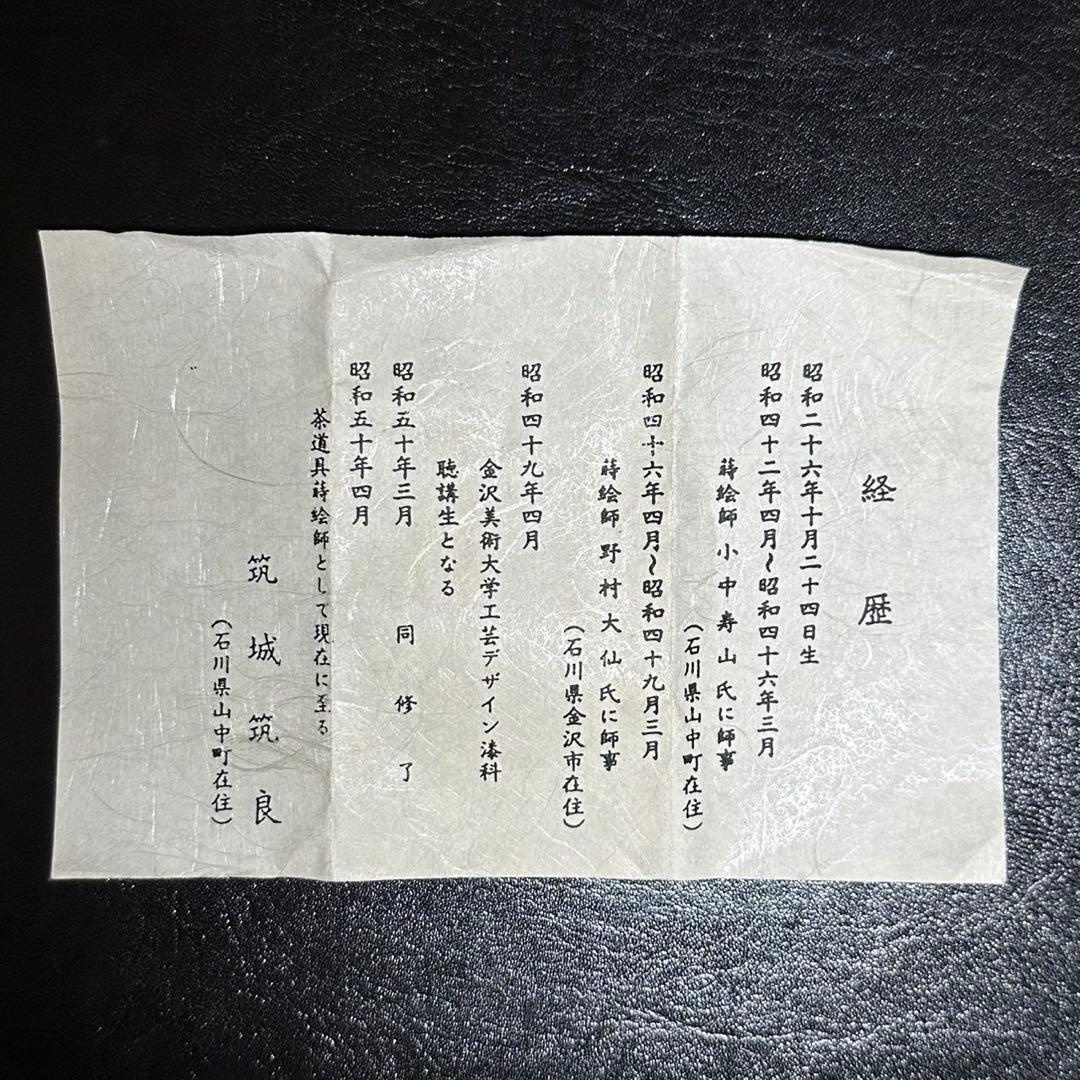 経歴
昭和二十六年十月二十四日生
昭和四十二年四月～昭和四十六年三月
蒔絵師 小中寿山氏に師事
（石川県山中町在住）
昭和四十六年四月～昭和四十九月三月
蒔絵師 野村大仙氏に師事
（石川県金沢市在住）
昭和四十九年四月
金沢美術大学工芸デザイン漆科
聴講生となる
昭和五十年三月 同修了
昭和五十年四月
茶道具蒔絵師として現在に至る
筑城筑良
（石川県山中町在住）